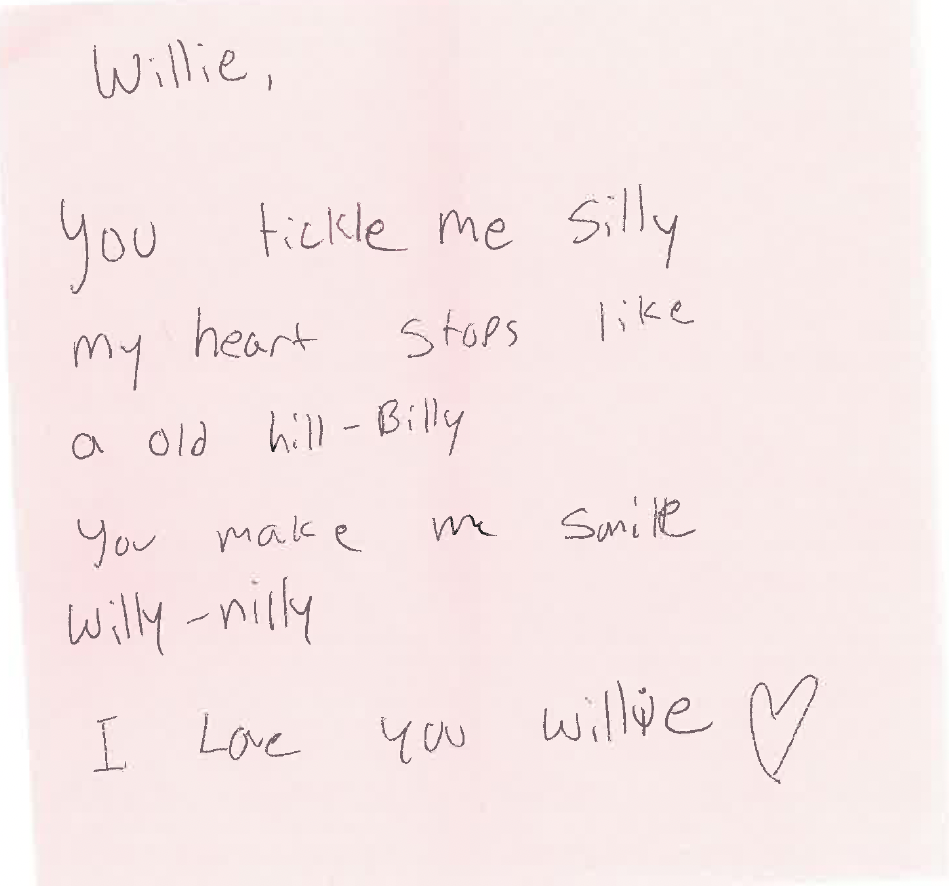 Willie,
You tickle me silly
my heart stops like
a old hill-Billy
You make me smile
Willy-nilly
I Love you willie ♡